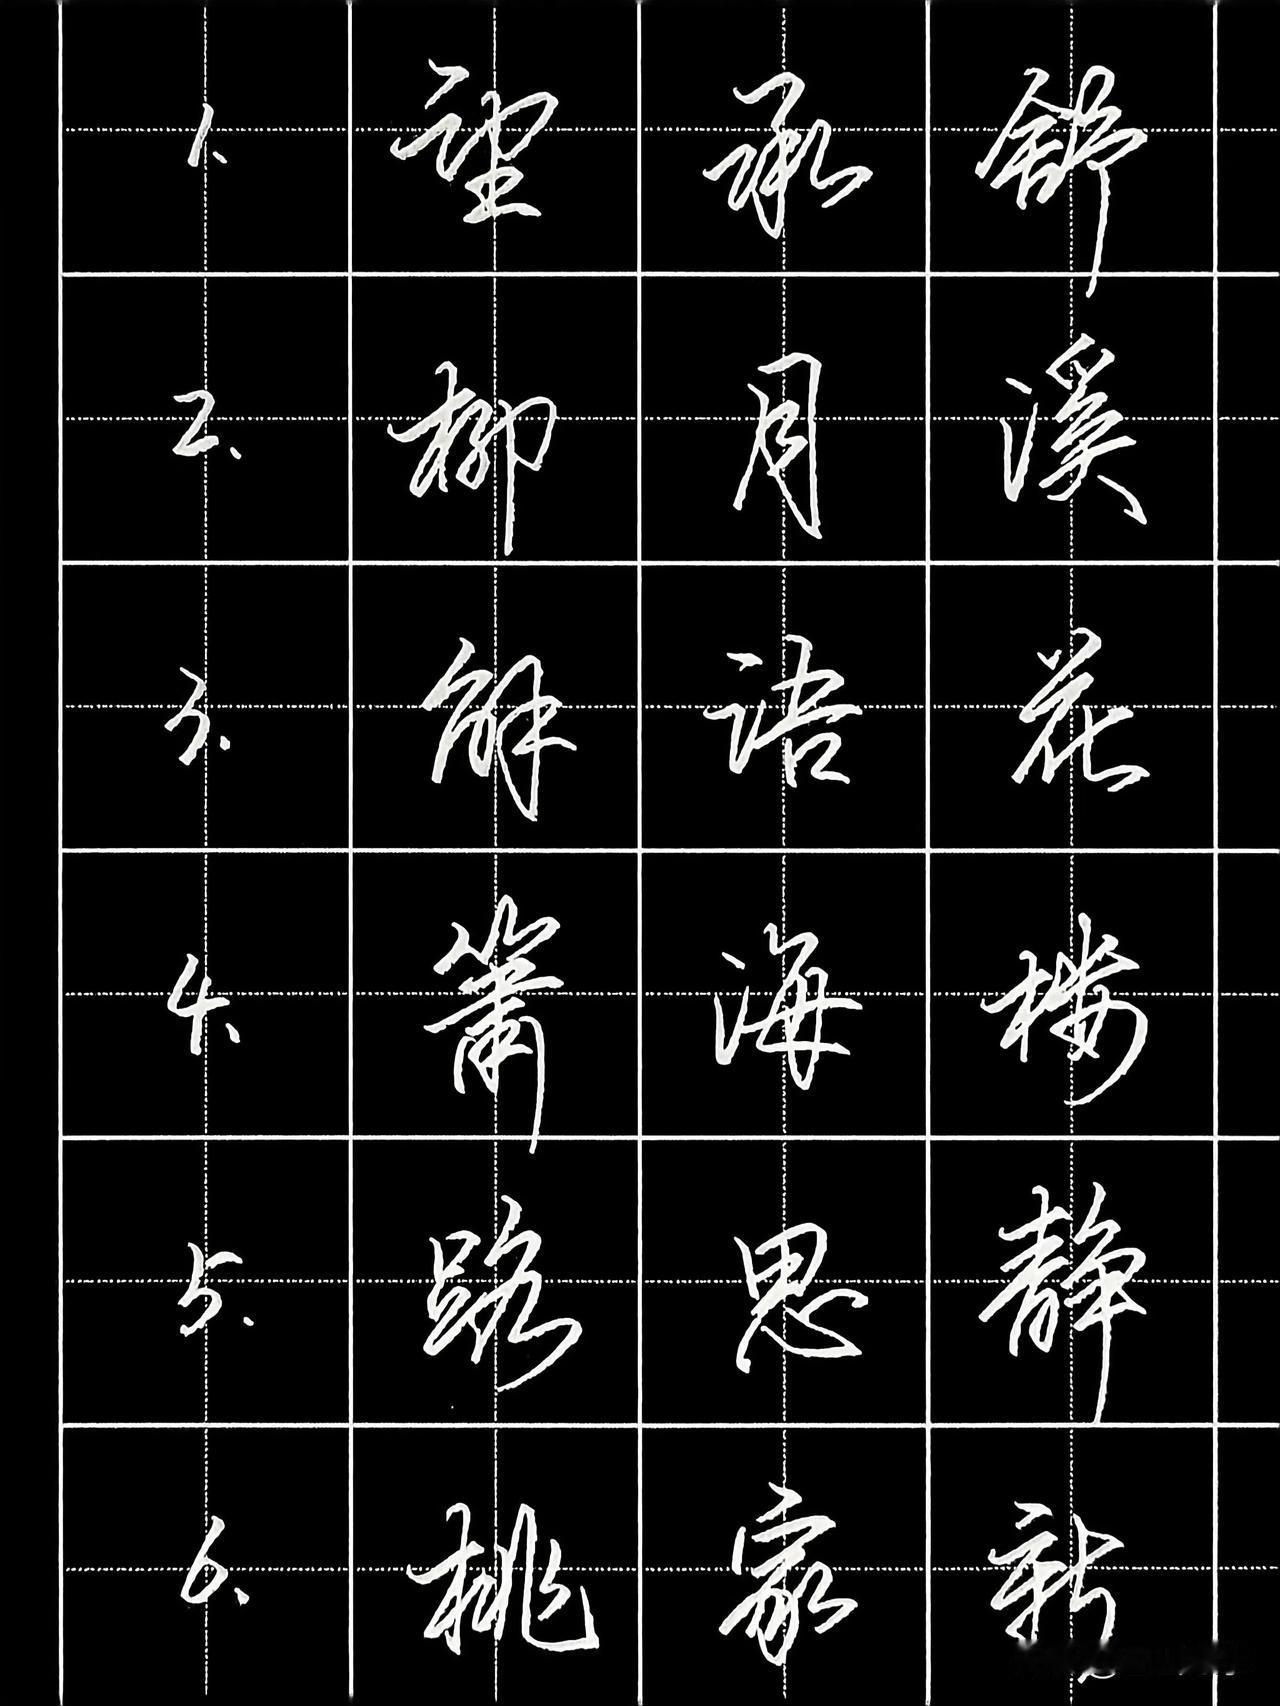 1、望承舒
2、柳月溪
3、解语花
4、箫海楼
5、路思静
6、桃家新